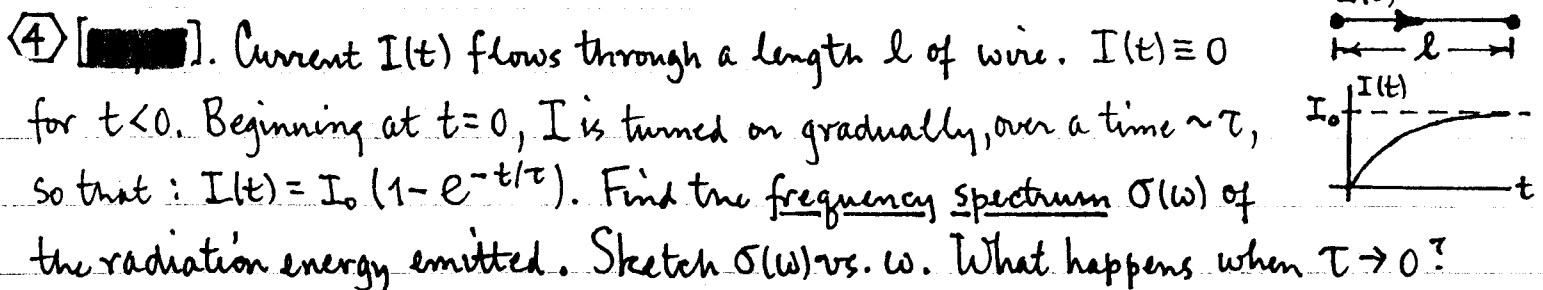 ④ [ ]. Current I(t) flows through a length l of wire. I(t) ≡ 0
for t<0. Beginning at t=0, I is turned on gradually, over a time ~τ,
so that : I(t) = I₀ (1 - e^{-t/τ}). Find the frequency spectrum σ(ω) of
the radiation energy emitted. Sketch σ(ω) vs. ω. What happens when τ → 0 ?
l
I(t)
I₀
t